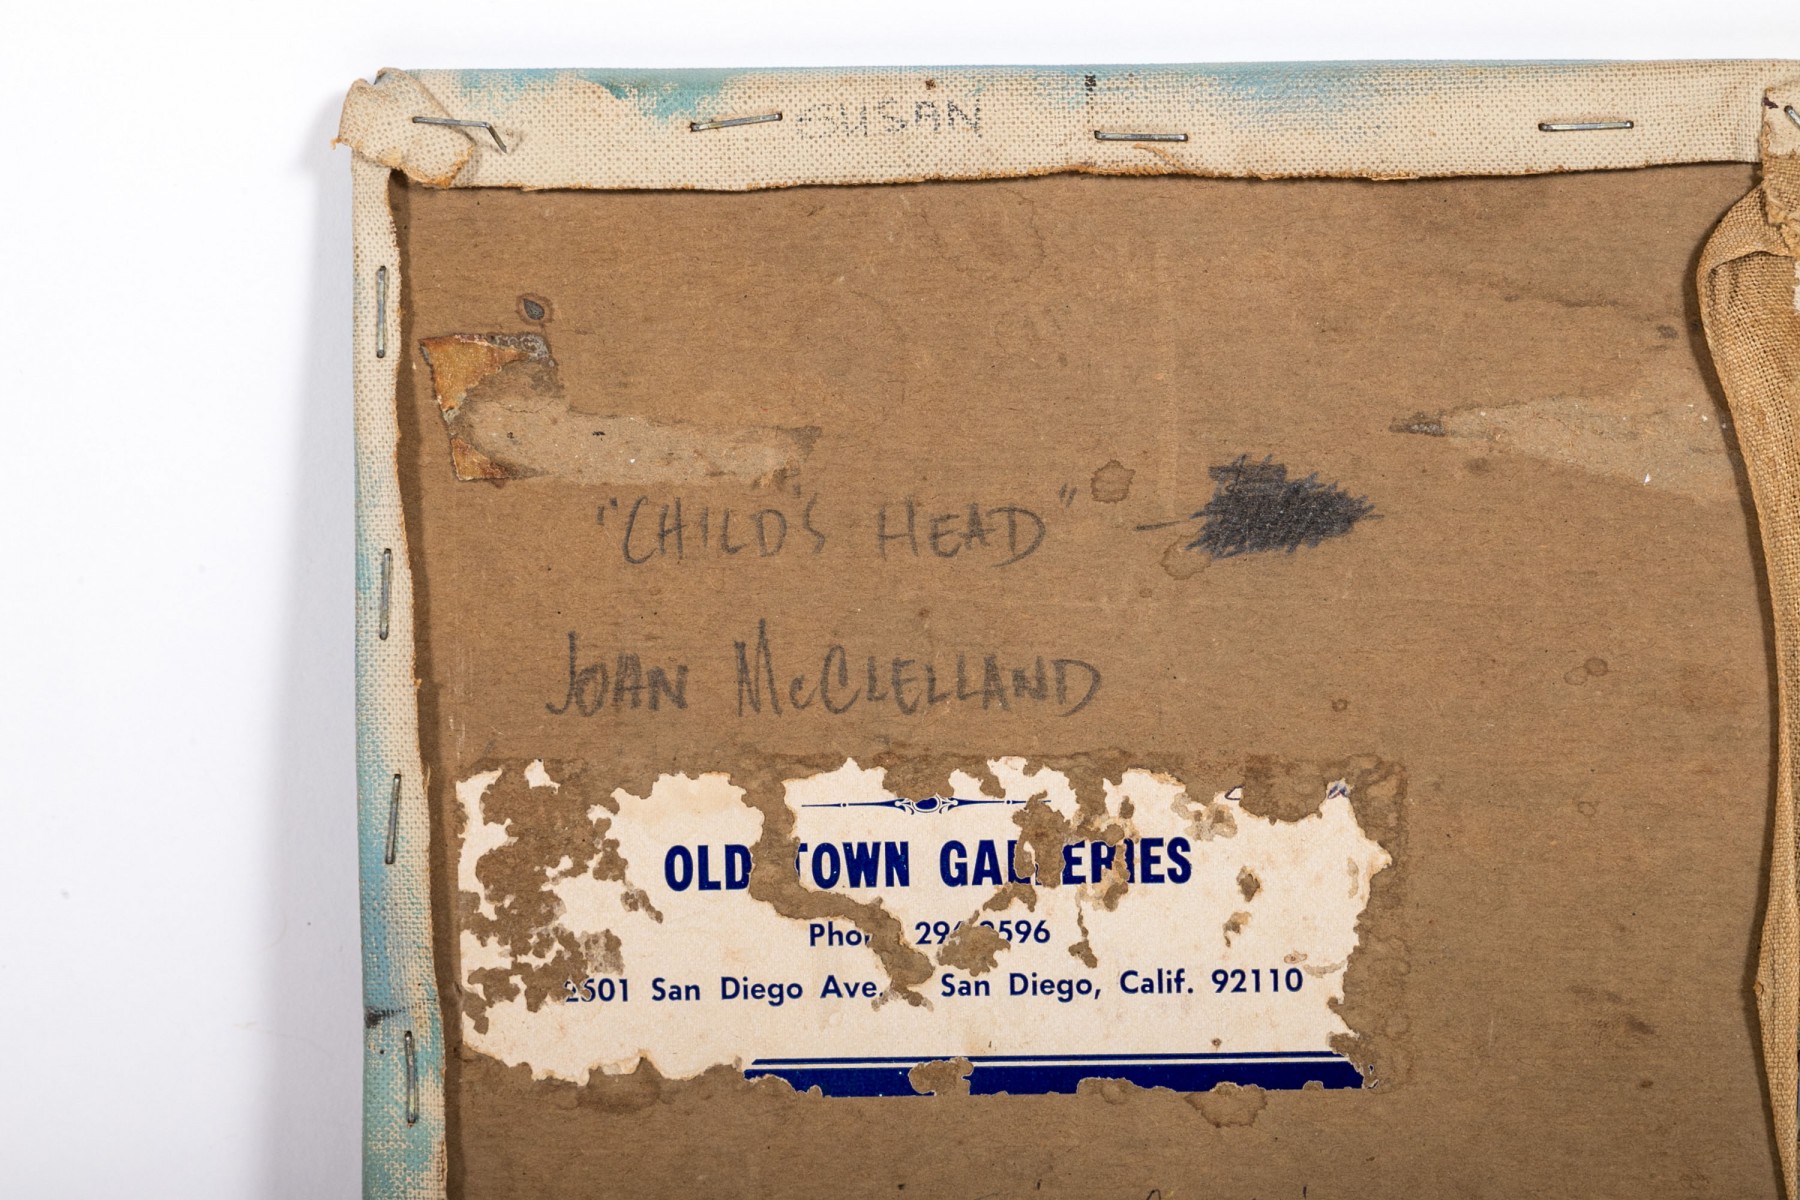 SUSAN
"CHILD'S HEAD"
JOAN McCLELLAND
OLD TOWN GALLERIES
San Diego Ave. San Diego, Calif. 92110